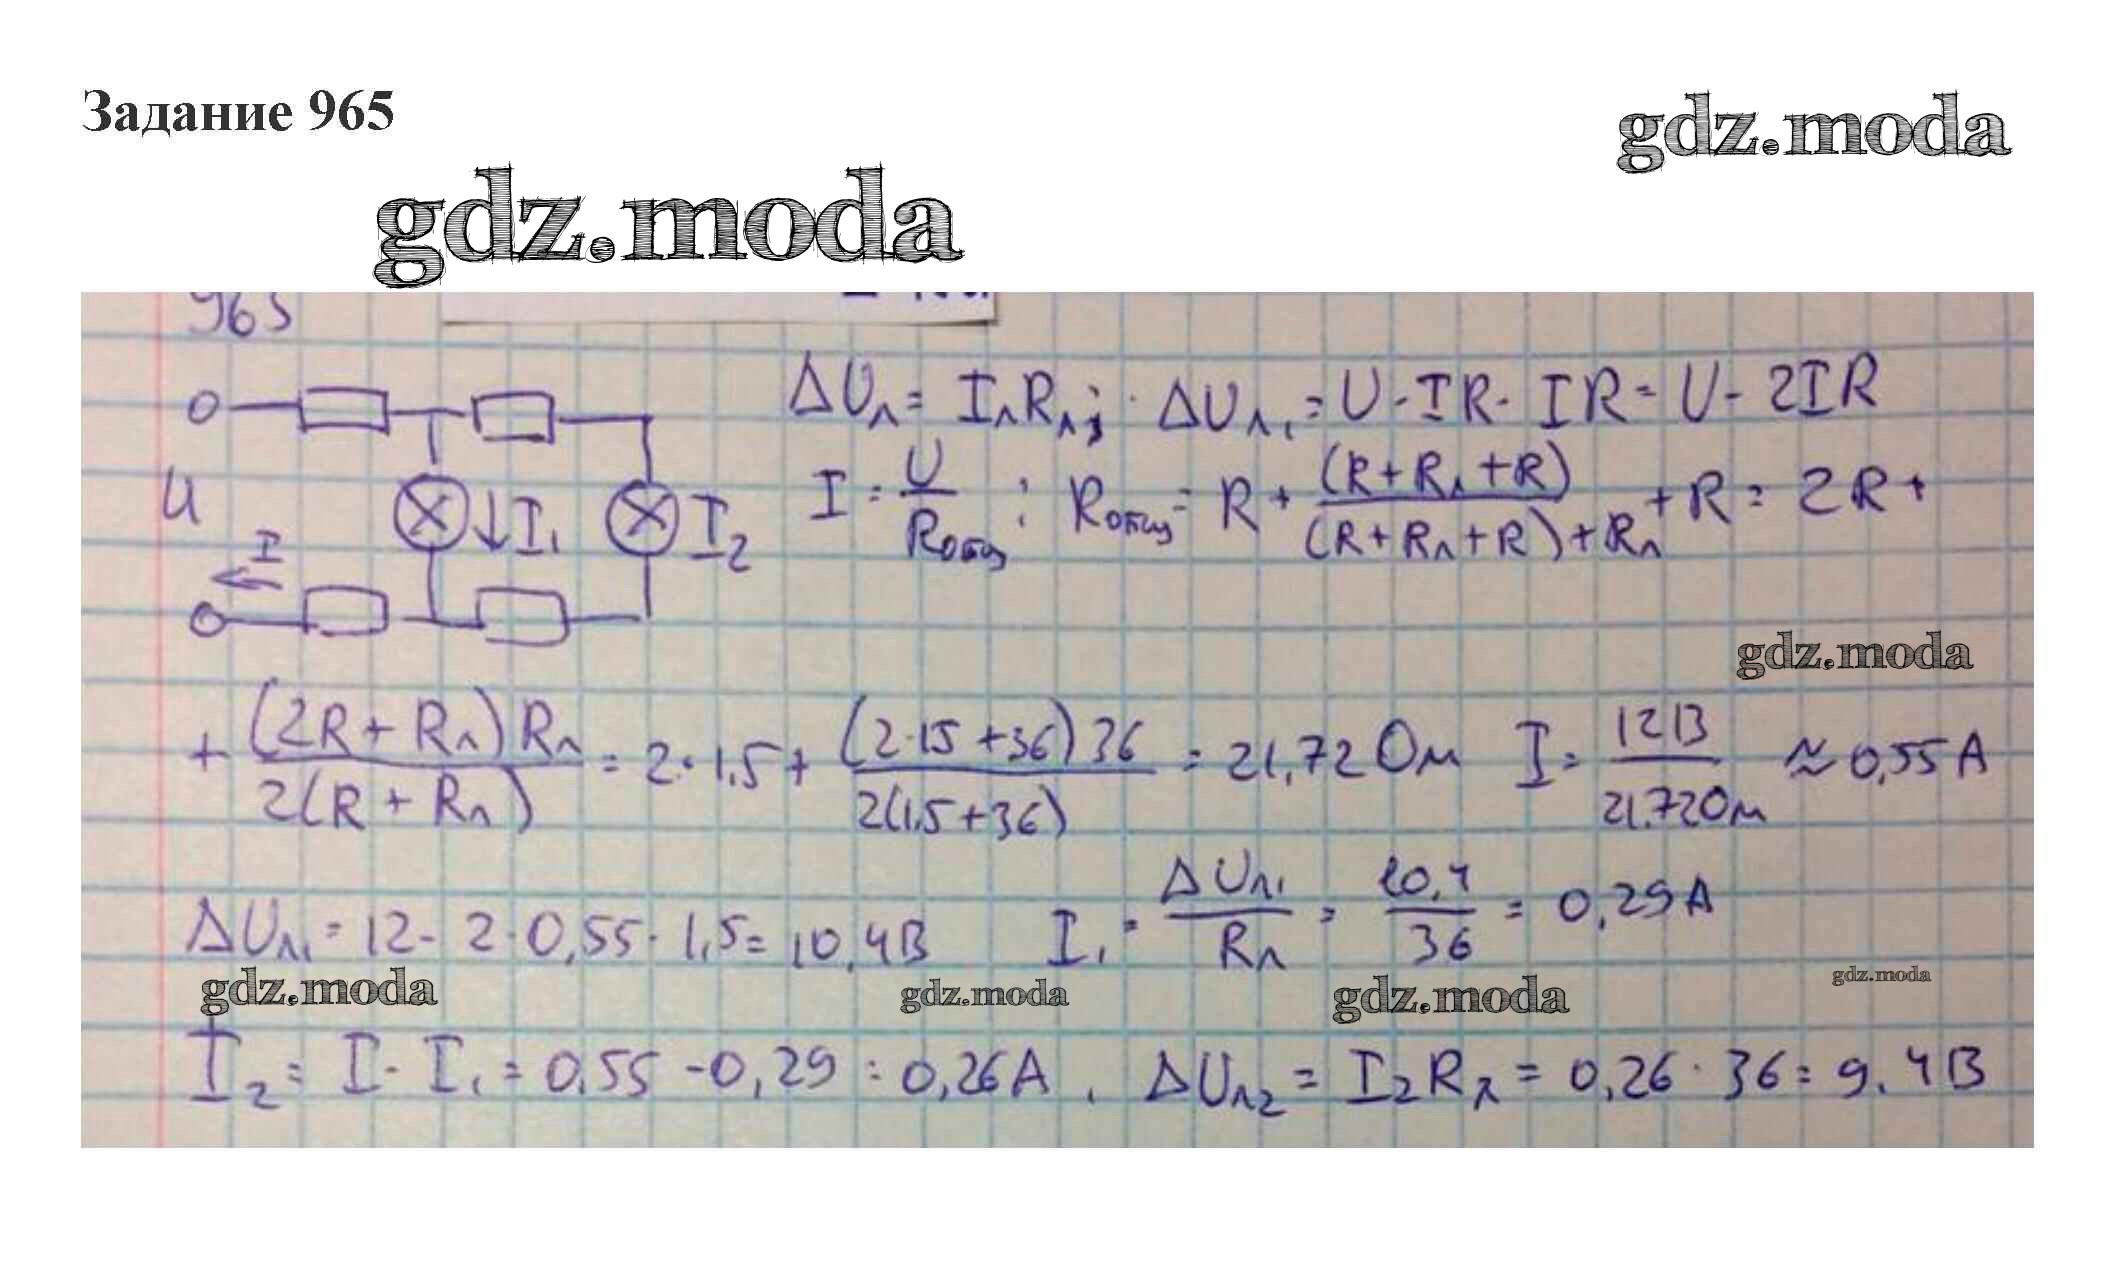 Задание 965
gdz.moda
gdz.moda
965
U I I₁ I₂
ΔUл = IлRл; ΔUл₁ = U - IR - IR = U - 2IR
I = U/Rобщ ; Rобщ = R + (R+Rл+R)/((R+Rл+R)+Rл) + R = 2R +
gdz.moda
+ (2R + Rл)Rл/2(R + Rл) = 2·1,5 + (2·15+36)36/2(1,5+36) = 21,72 Ом I = 12В/21,72Ом ≈ 0,55 А
ΔUл₁ = 12 - 2·0,55·1,5 = 10,4В I₁ = ΔUл₁/Rл = 10,4/36 = 0,29А
gdz.moda gdz.moda gdz.moda gdz.moda
I₂ = I - I₁ = 0,55 - 0,29 = 0,26А, ΔUл₂ = I₂Rл = 0,26·36 = 9,4В